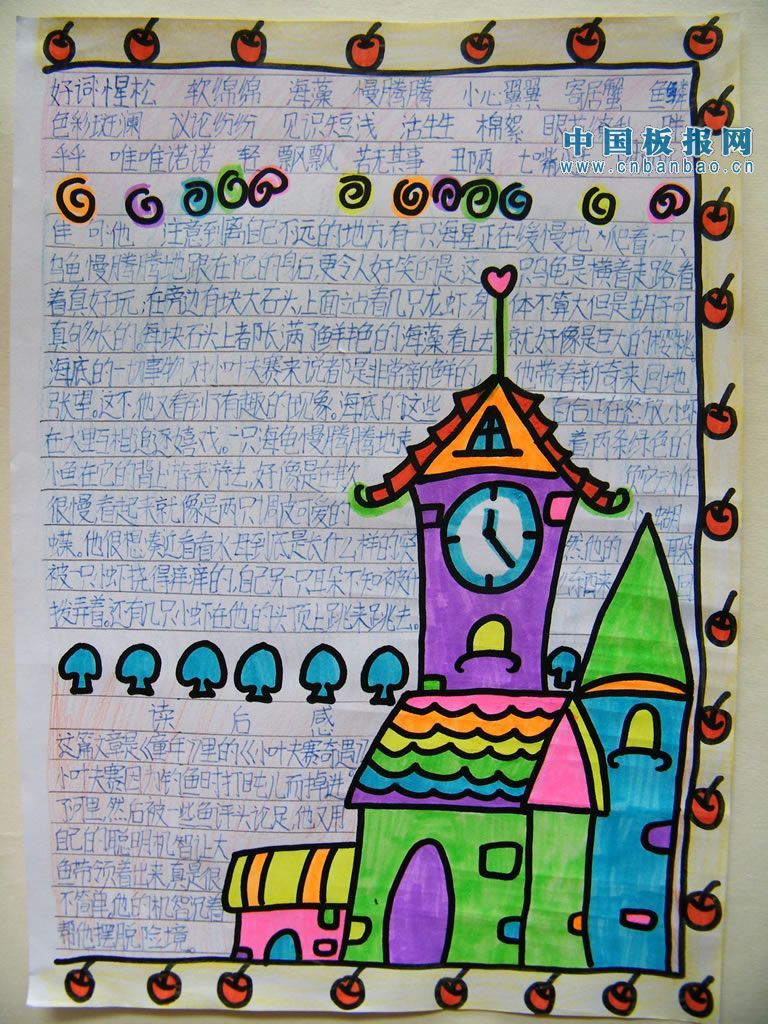 好词:惺松 软绵绵 海藻 慢腾腾 小心翼翼 寄居蟹 鱼鳞
色彩斑澜 议论纷纷 见识短浅 活生生 棉絮
中国板报网
www.cnbanbao.cn
乎乎 唯唯诺诺 轻飘飘 若无其事 丑陋 七嘴
佳句:他 注意到离自己不远的地方,有一只海星正在缓慢地 爬着,一只
乌龟慢腾腾地跟在它的身后,更令人好笑的是,这 只乌龟是横着走路,看
着真好玩,在旁边有块大石头,上面立占着几只龙虾,身 体不算大但是胡子可
真够长的。每块石头上都长满了鲜艳色的海藻,看上去 就好像是巨大的樱桃
海底的一切事物,对小叶夫赛来说都是非常新鲜的 他带着新奇来回地
张望。这不,他又看到了有趣的现象。海底的这些
在水里互相追逐嬉戏。一只海龟慢腾腾地走 着两条绿色的
小鱼在它的背上游来游去,好像是在欺 它动作
很慢,看起来就像是两只调皮可爱的 小蝴
蝶。他很想凑近看看水母到底是长什么样的 然他的 耳朵
被一只虾挠得痒痒的,自己另一只耳朵不知被什
拨弄着。还有几只小虾在他的头顶上跳来跳去。
读后感
这篇文章是《童年》里的《小叶夫赛奇遇》
小叶夫赛因为钓鱼时打盹儿而掉进
河里,然后被一些鱼评头论足,他又用
自己的聪明机智让大
鱼带领着出来,真是很
不简单,他的机智沉着
帮他摆脱险境。